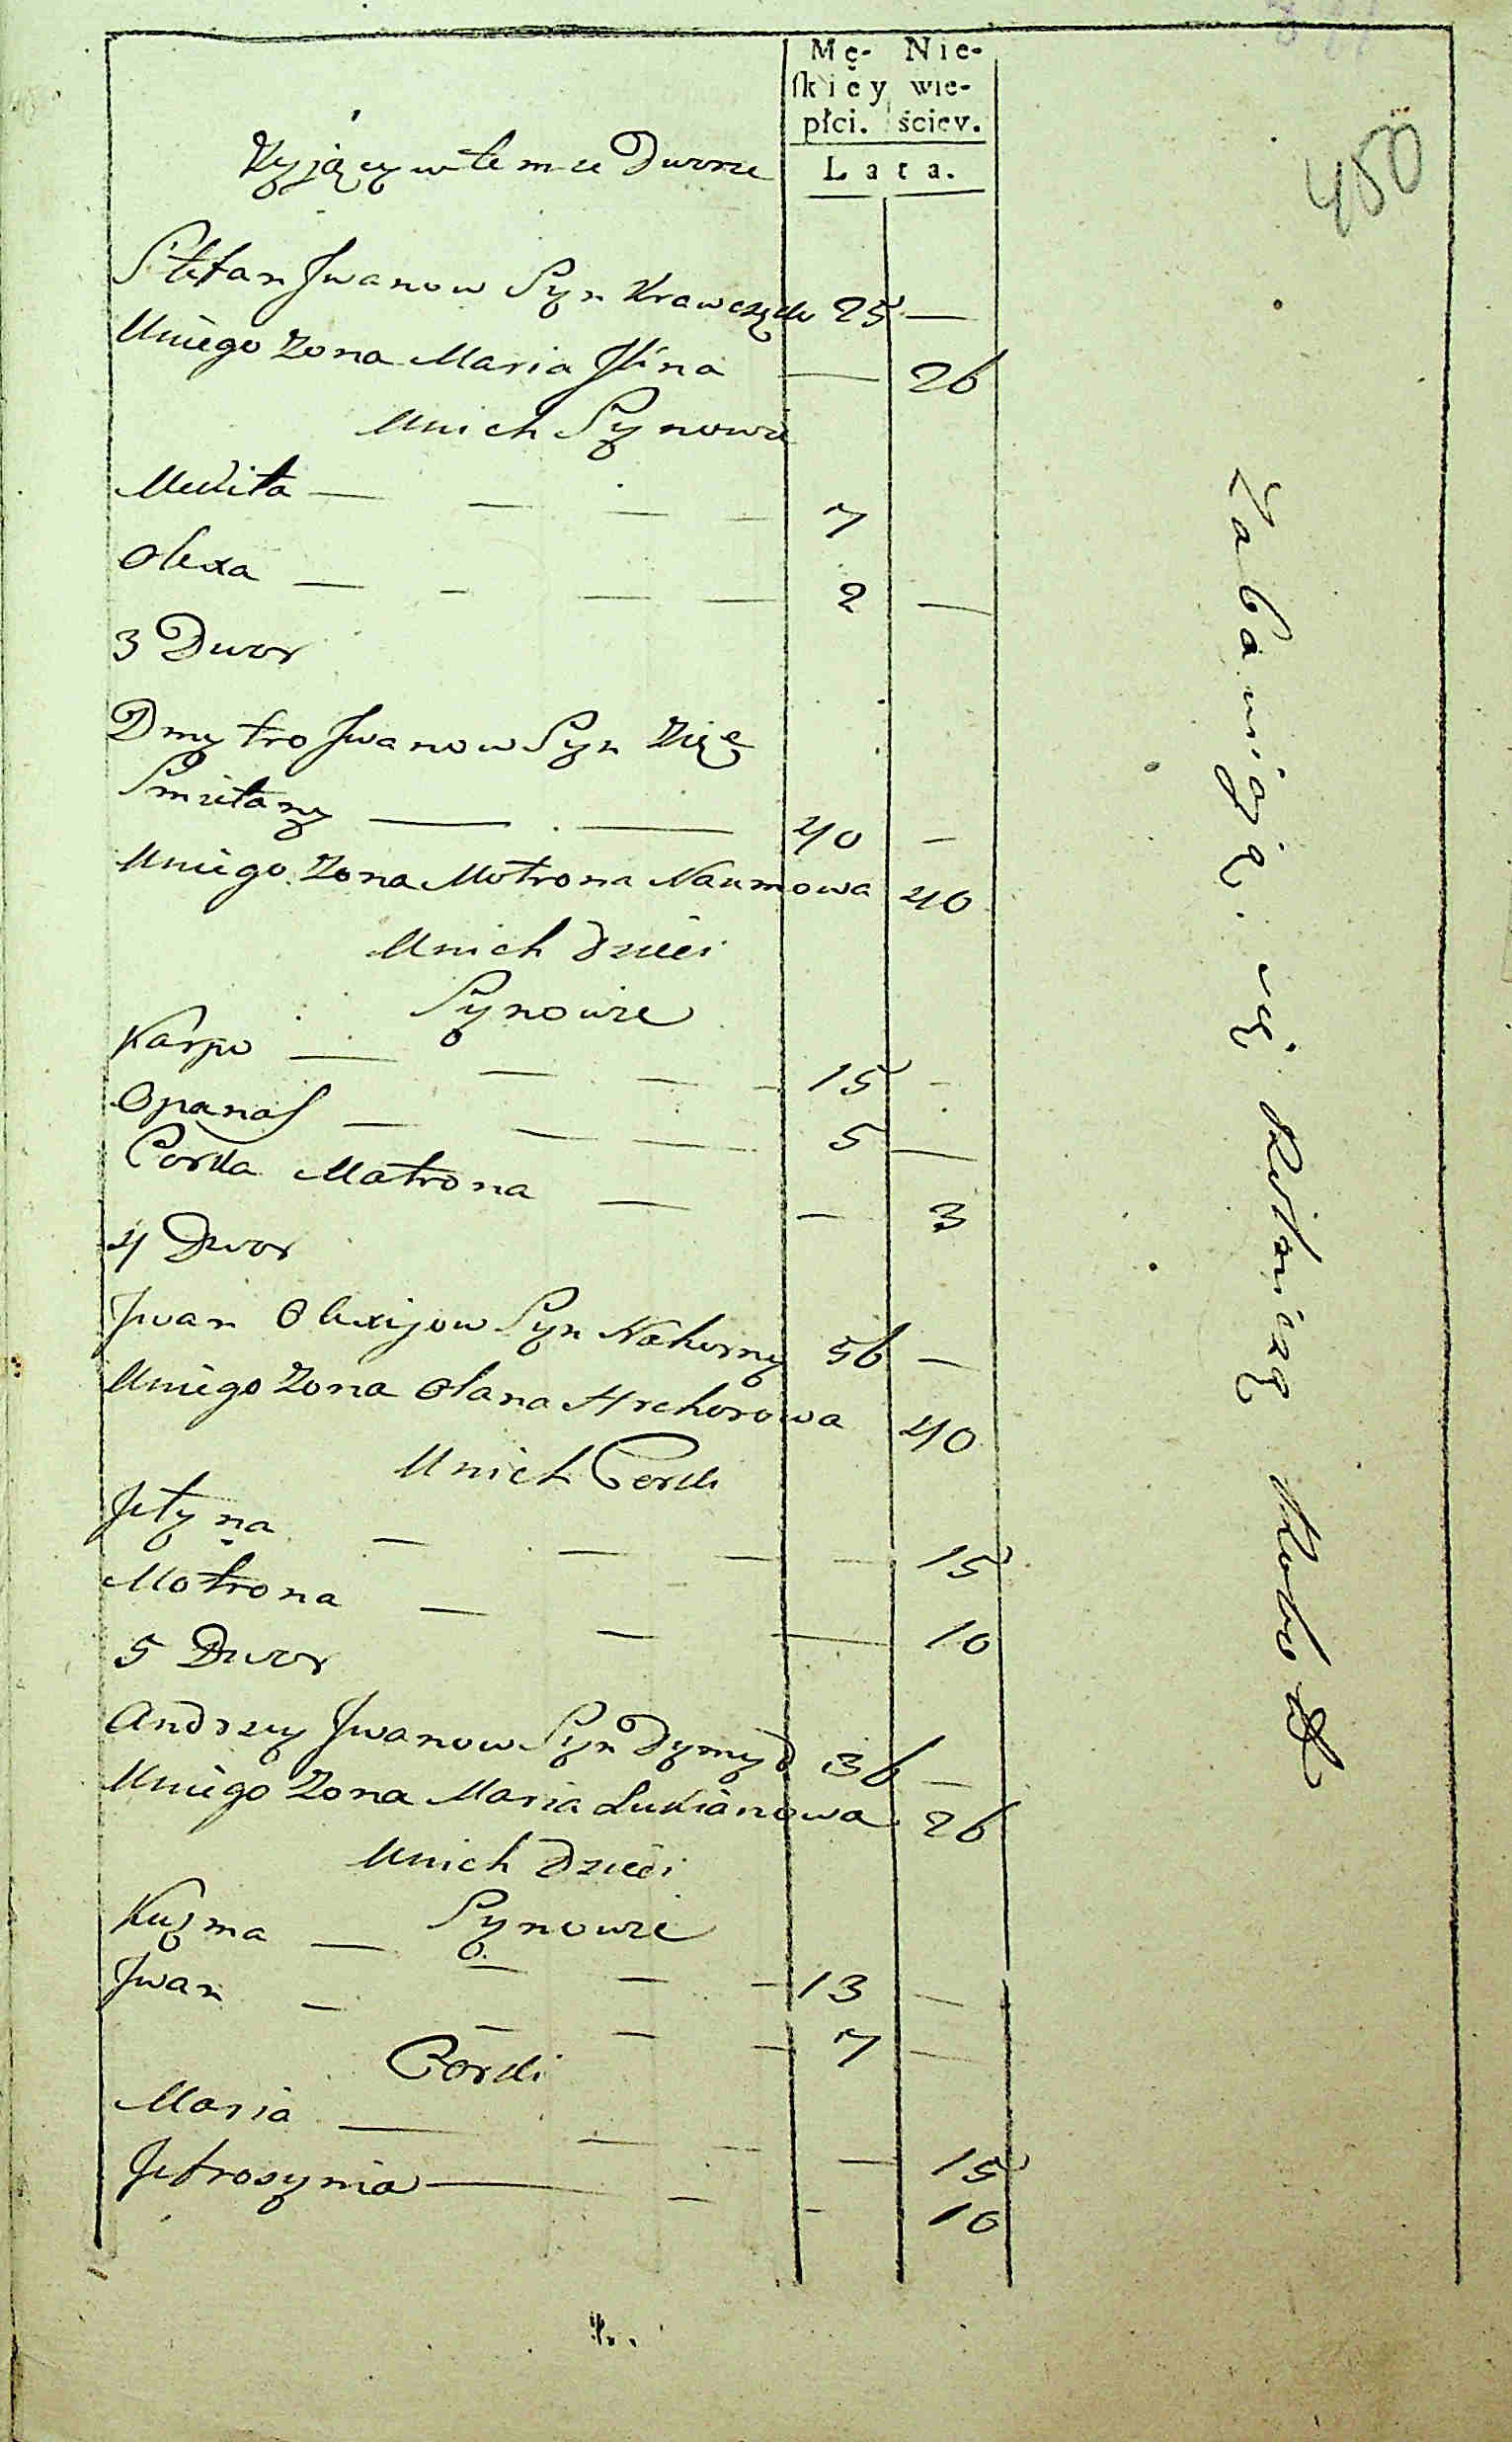 Mę- Nie-
ſkiey wie-
płci. ściey.
Lata.
450
Żyjący w temze Dworze
Stefan Jwanow Syn Krawczuk 25 —
Uniego Zona Maria Jlina — 26
Unich Synowie
Mikita — — — — 7
Olexa — — — — 2 —
3 Dwor
Dmytro Jwanow Syn Zięć
Smitany — — 40 —
Uniego Zona Motrona Naumowa 40
Unich Dzieci
Synowie
Karpo — — — — 15 —
Opanas — — — 5 —
Corka Matrona — — 3
4 Dwor
Jwan Olexijow Syn Nahorny 56 —
Uniego Zona Olana Hrehorowa 40
Unich Corki
Jltyna — — — — 15
Motrona — — — 10
5 Dwor
Andrzey Jwanow Syn Dymyd 36 —
Uniego Zona Maria Lukianowa 26
Unich Dzieci
Synowie
Kuzma — — — — 13 —
Jwan — — — — 7 —
Corki
Maria — — — — 15
Jefrosynia — — — 10
Zabawiają się Rolniczą Robotą